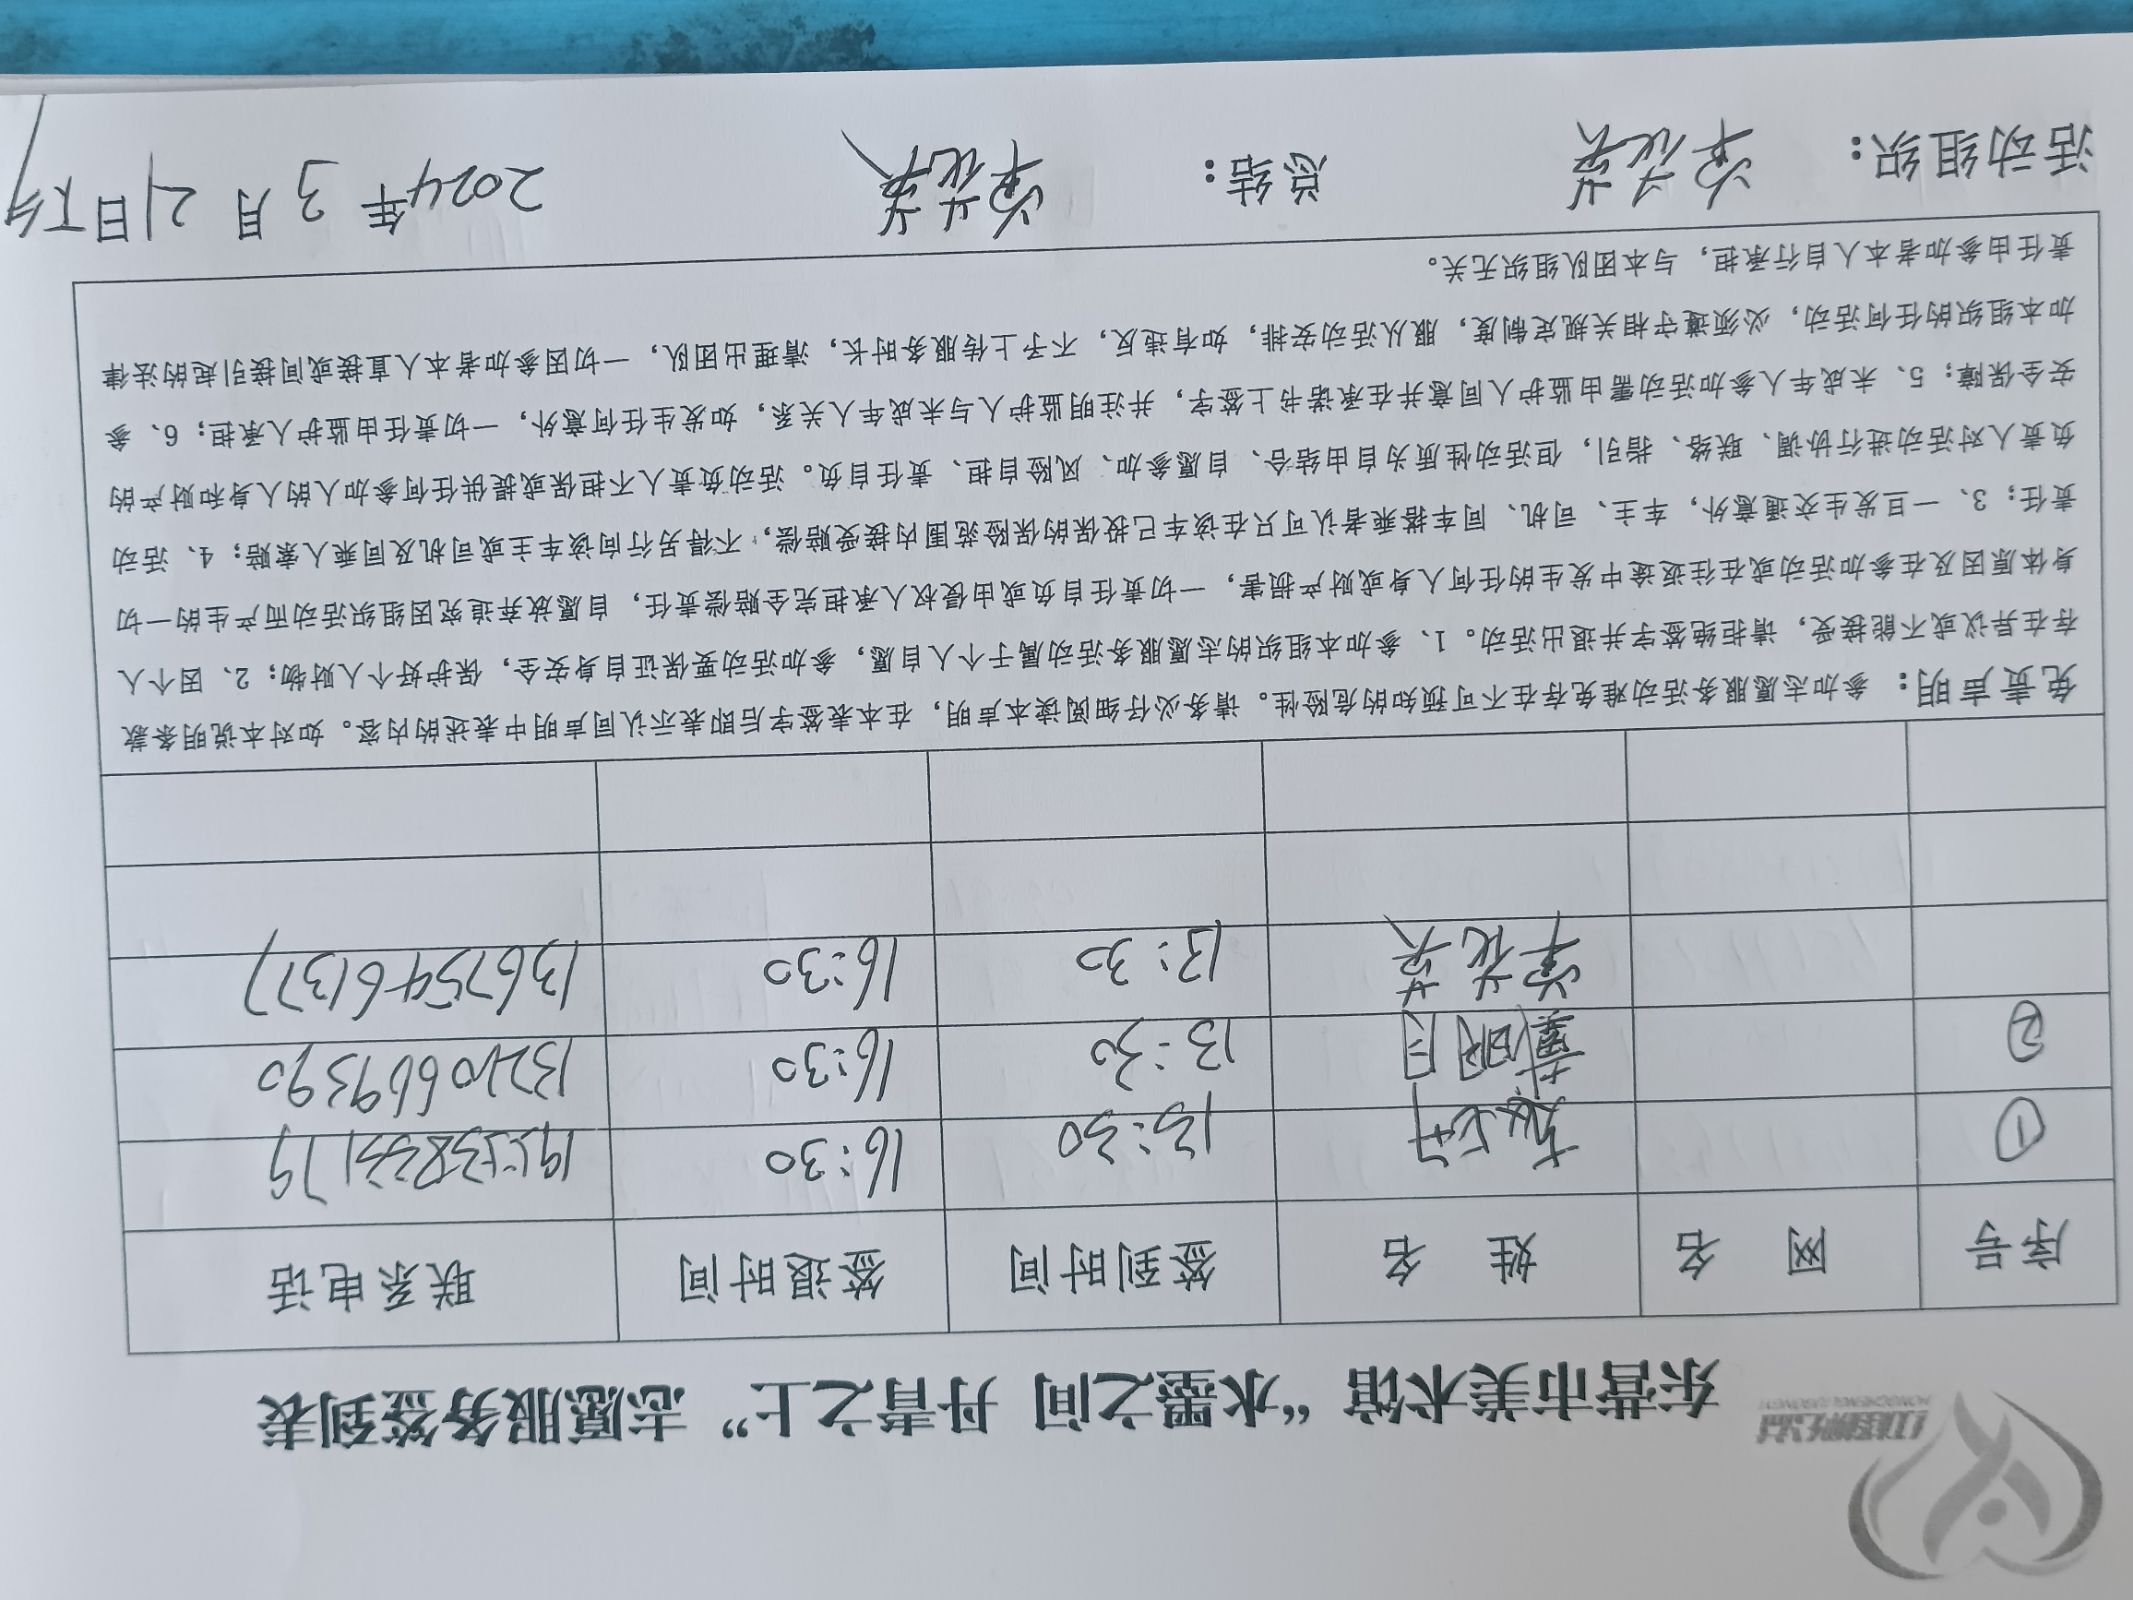 东营市美术馆“水墨之间 丹青之上”志愿服务签到表
序号 网 名 姓 名 签到时间 签退时间 联系电话
① 13:30 16:30
② 明月 13:30 16:30 13210669390
13:30 16:30 13675461377
免责声明：参加志愿服务活动难免存在不可预知的危险性。请务必仔细阅读本声明，在本表签字后即表示认同声明中表述的内容。如对本说明条款
存在异议或不能接受，请拒绝签字并退出活动。1、参加本组织的志愿服务活动属于个人自愿，参加活动要保证自身安全，保护好个人财物；2、因个人
身体原因及在参加活动或在往返途中发生的任何人身或财产损害，一切责任自负或由侵权人承担完全赔偿责任，自愿放弃追究因组织活动而产生的一切
责任；3、一旦发生交通意外，车主、司机、同车搭乘者认可只在该车已投保的保险范围内接受赔偿，不得另行向该车主或司机及同乘人索赔；4、活动
负责人对活动进行协调、联络、指引，但活动性质为自由结合、自愿参加、风险自担、责任自负。活动负责人不担保或提供任何参加人的人身和财产的
安全保障；5、未成年人参加活动需由监护人同意并在承诺书上签字，并注明监护人与未成年人关系，如发生任何意外，一切责任由监护人承担；6、参
加本组织的任何活动，必须遵守相关规定制度，服从活动安排，如有违反，不予上传服务时长，清理出团队，一切因参加者本人直接或间接引起的法律
责任由参加者本人自行承担，与本团队组织无关。
活动组织： 总结： 2024年3月21日下午